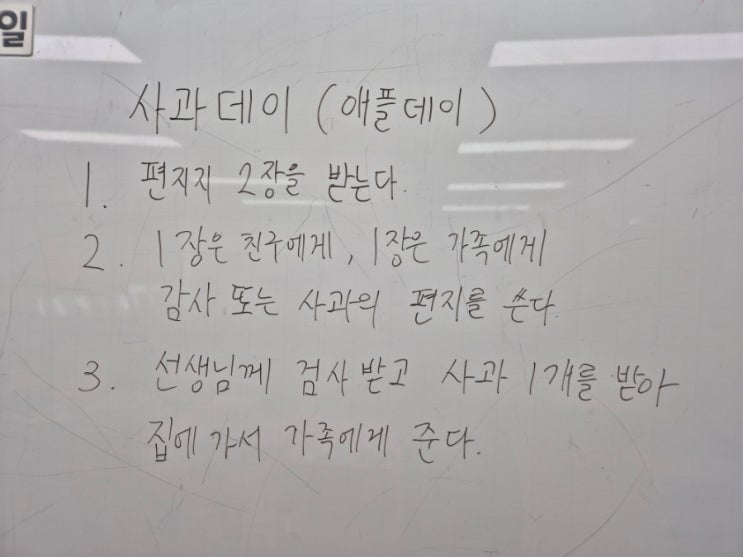 일
사과데이 (애플데이)
1. 편지지 2장을 받는다.
2. 1장은 친구에게, 1장은 가족에게
감사 또는 사과의 편지를 쓴다.
3. 선생님께 검사 받고 사과 1개를 받아
집에 가서 가족에게 준다.